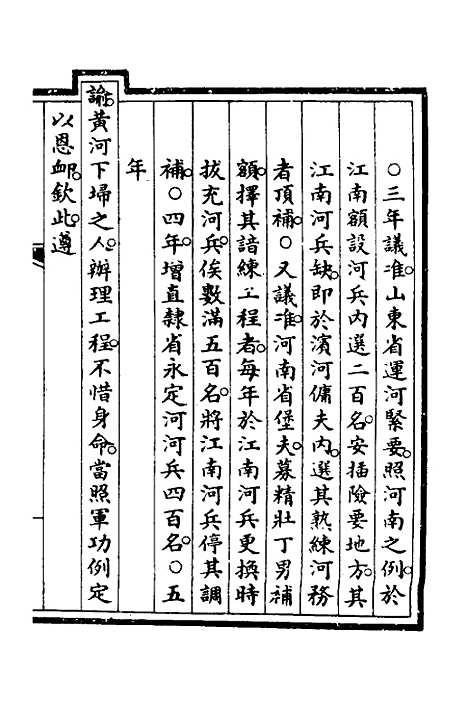 ○三年議准。山東省運河緊要。照河南之例。於
江南額設河兵内選二百名。安插險要地方。其
江南河兵缺。即於濱河傭夫内。選其熟練河務
者頂補。○又議准。河南省堡夫。募精壯丁男補
額。擇其諳練工程者。每年於江南河兵更換時
拔充河兵。俟數滿五百名。將江南河兵停其調
補。○四年。增直隸省永定河河兵四百名。○五
年
諭。黃河下埽之人。辦理工程。不惜身命。當照軍功例定
以恩䘏。欽此。遵